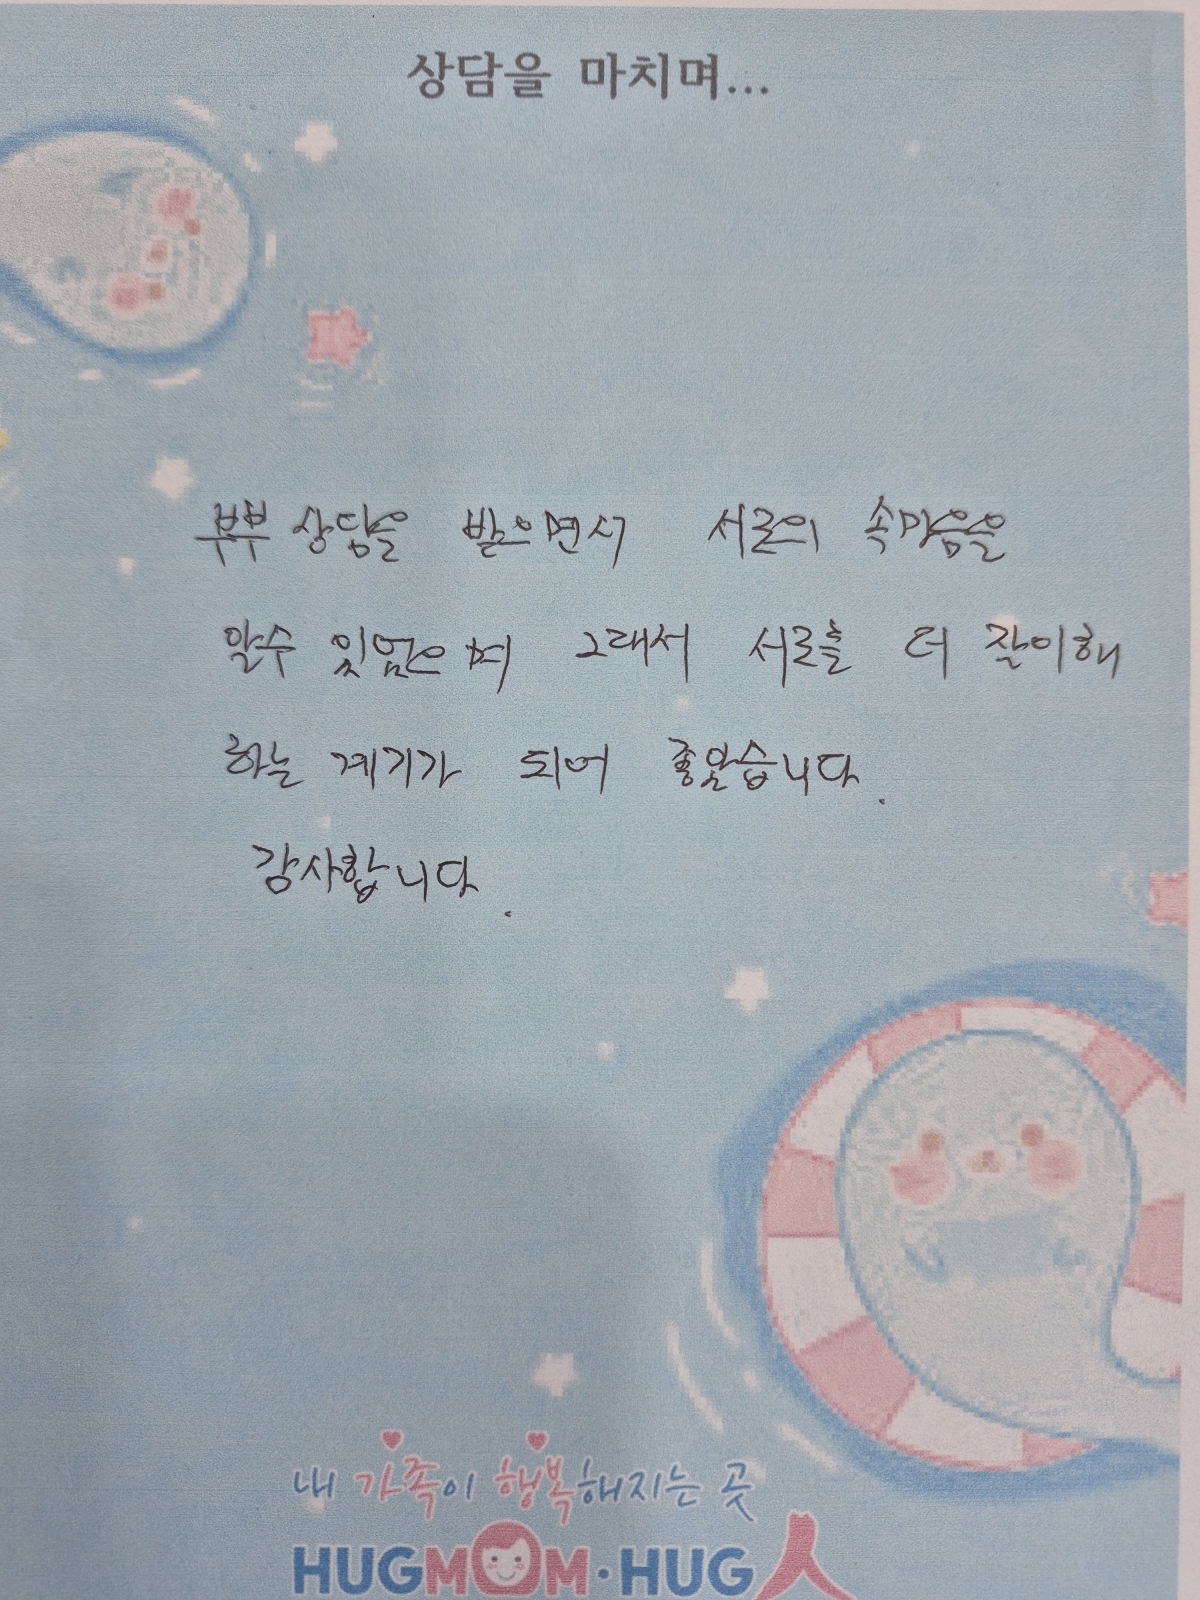 상담을 마치며...
부부 상담을 받으면서 서로의 속마음을
알수 있었으며 그래서 서로를 더 잘이해
하는 계기가 되어 좋았습니다.
감사합니다.
내 가족이 행복해지는 곳
HUGMOM·HUG人